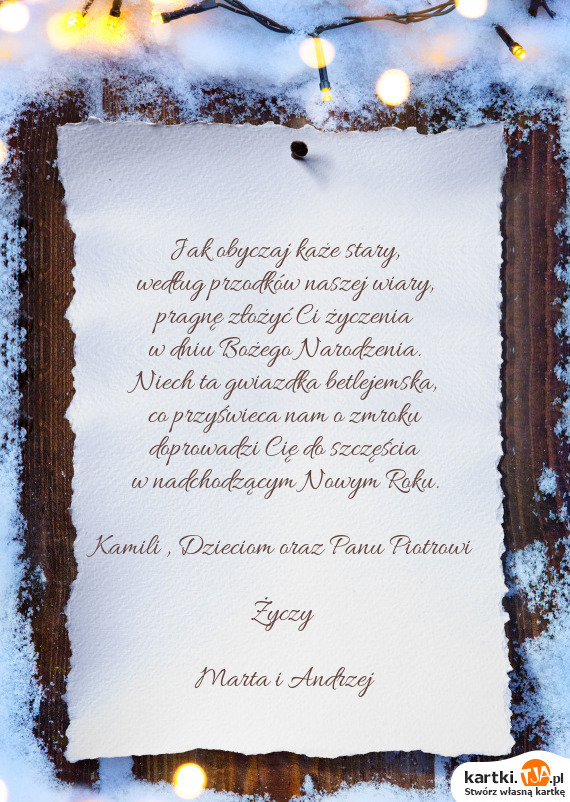 Jak obyczaj każe stary,
według przodków naszej wiary,
pragnę złożyć Ci życzenia
w dniu Bożego Narodzenia.
Niech ta gwiazdka betlejemska,
co przyświeca nam o zmroku
doprowadzi Cię do szczęścia
w nadchodzącym Nowym Roku.
Kamili , Dzieciom oraz Panu Piotrowi
Życzy
Marta i Andrzej
kartki.TJA.pl
Stwórz własną kartkę